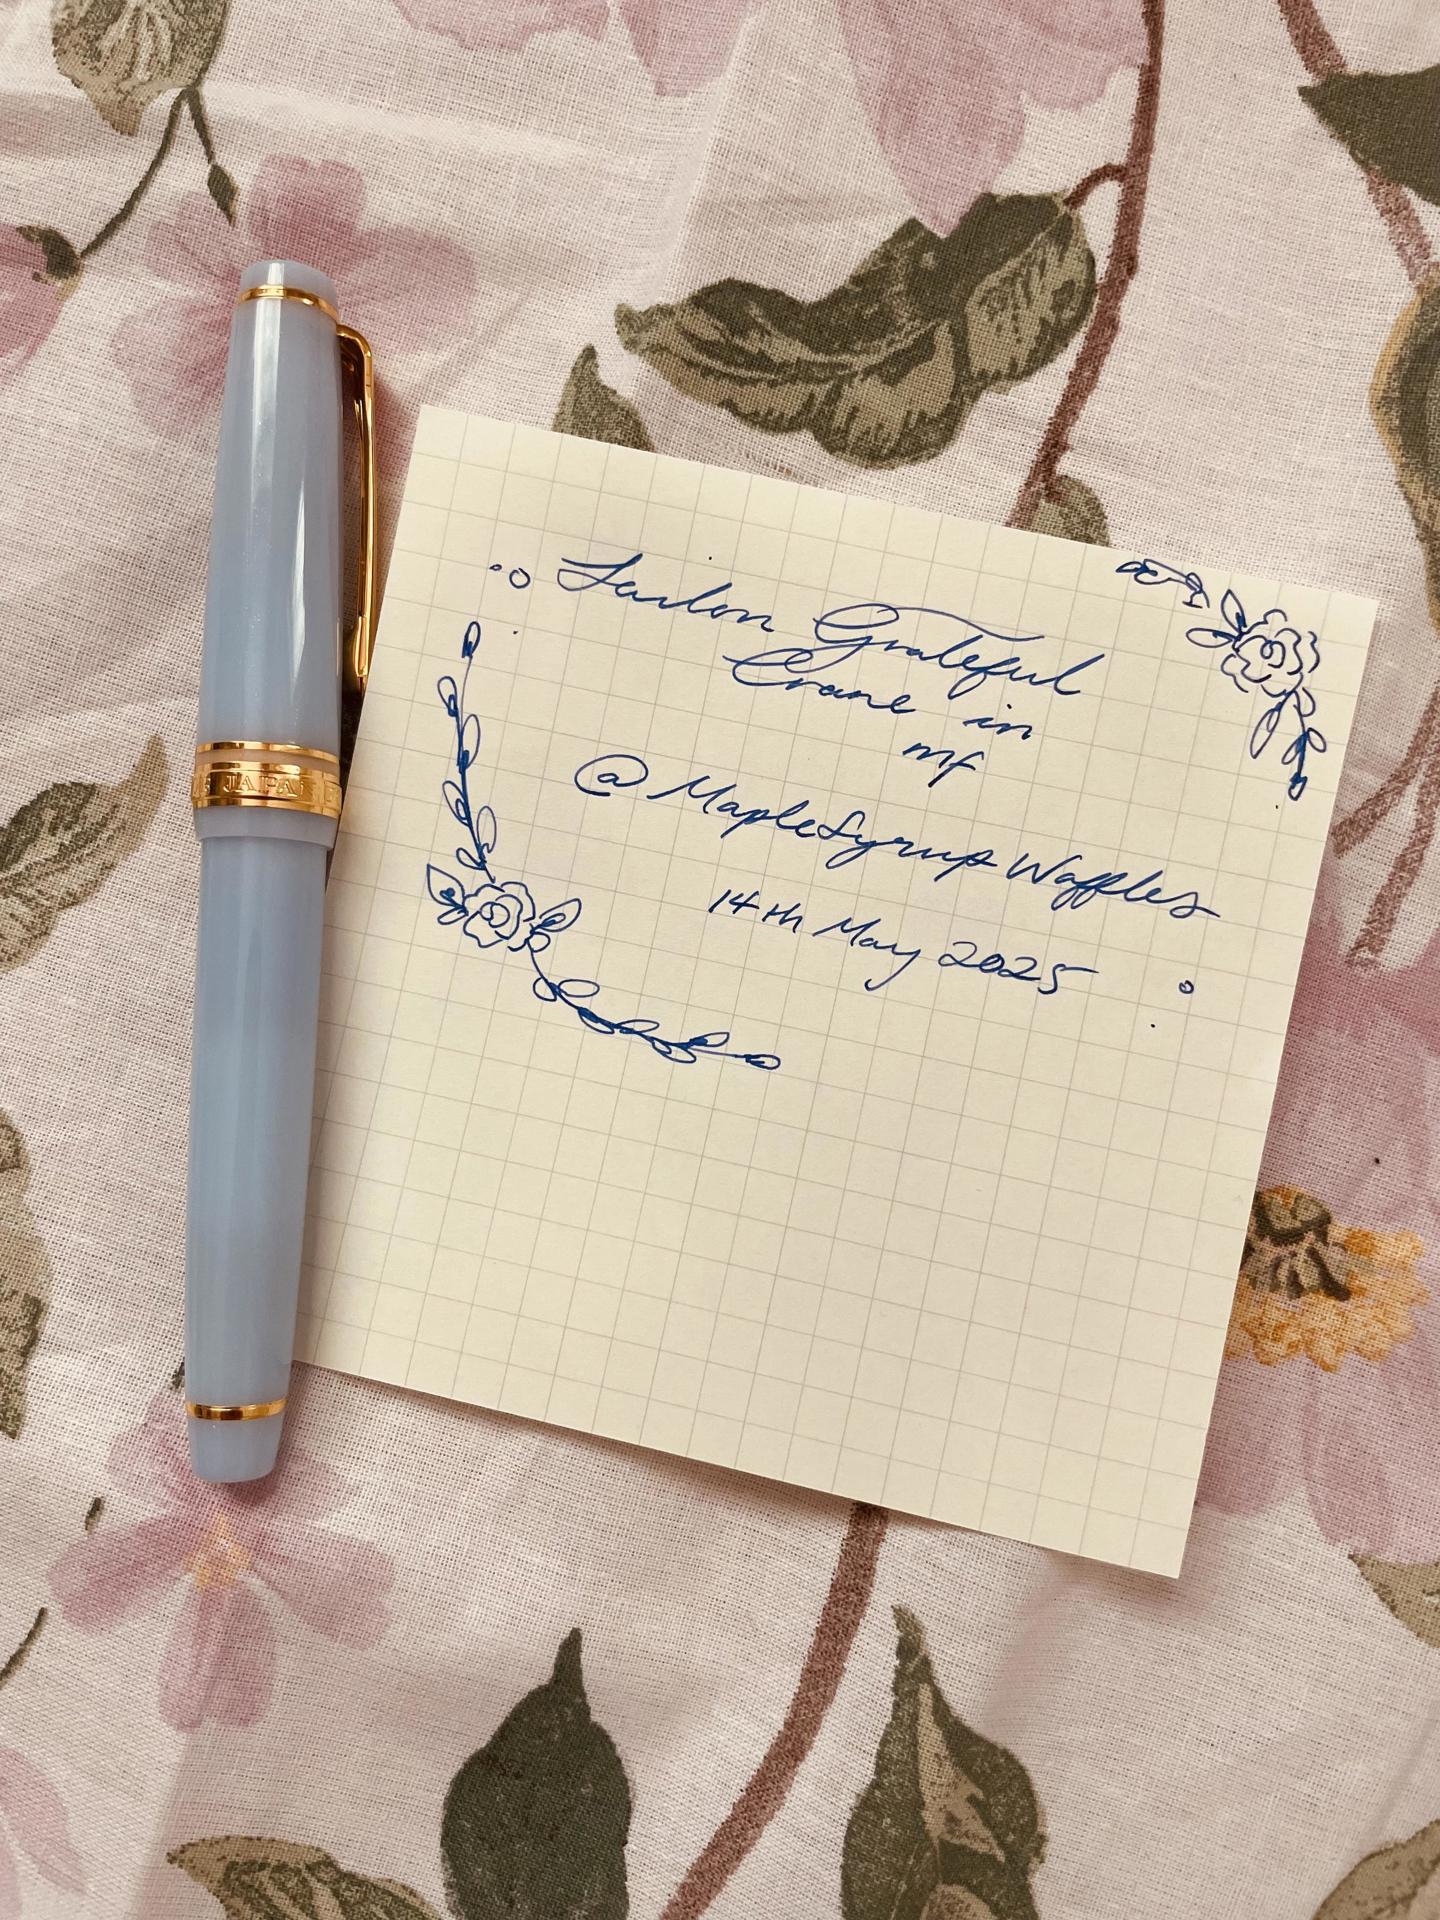 JAPAN
Sailor Grateful
Crane in
mf
@MapleSyrupWaffles
14th May 2025